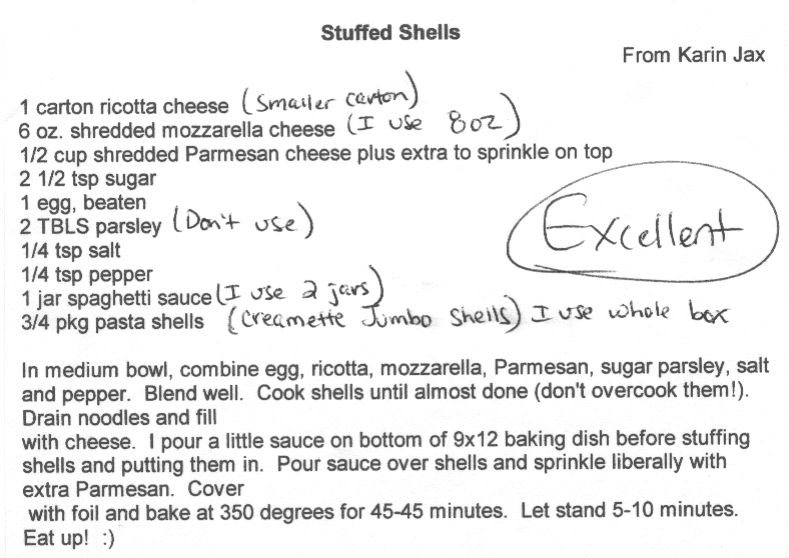 Stuffed Shells
From Karin Jax
1 carton ricotta cheese (Smaller carton)
6 oz. shredded mozzarella cheese (I use 8oz)
1/2 cup shredded Parmesan cheese plus extra to sprinkle on top
2 1/2 tsp sugar
1 egg, beaten
2 TBLS parsley (Don't use)
Excellent
1/4 tsp salt
1/4 tsp pepper
1 jar spaghetti sauce (I use 2 jars)
3/4 pkg pasta shells (Creamette Jumbo Shells) I use whole box
In medium bowl, combine egg, ricotta, mozzarella, Parmesan, sugar parsley, salt
and pepper. Blend well. Cook shells until almost done (don't overcook them!).
Drain noodles and fill
with cheese. I pour a little sauce on bottom of 9x12 baking dish before stuffing
shells and putting them in. Pour sauce over shells and sprinkle liberally with
extra Parmesan. Cover
with foil and bake at 350 degrees for 45-45 minutes. Let stand 5-10 minutes.
Eat up! :)